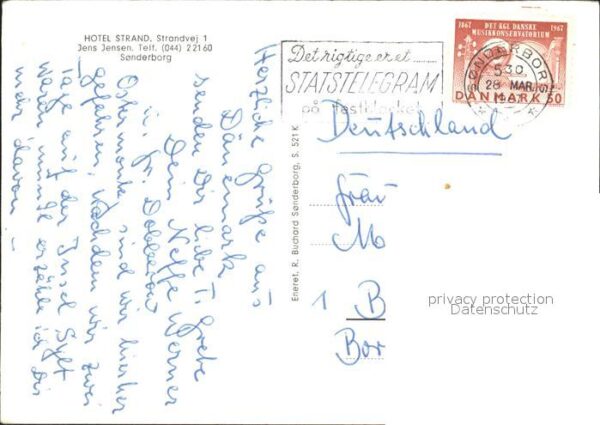 HOTEL STRAND. Strandvej 1
Jens Jensen. Telf. (044) 2 21 60
Sønderborg
Herzliche Grüße aus
Dänemark
senden Dir liebe T. Grete
Dein Neffe Werner
u. Fr.
Ostermontag sind wir hierher
gefahren, nachdem wir zwei
Tage auf der Insel Sylt
waren, erzähle ich Dir
mehr davon –
Eneret. R. Buchard Sønderborg, S. 521 K
Det rigtige er et
STATSTELEGRAM
på festblanket
1867 DET KGL DANSKE 1967
MUSIKKONSERVATORIUM
DANMARK 50
SØNDERBORG
530
28 MAR.
Deutschland
Frau
M
1 B
Bor
privacy protection
Datenschutz